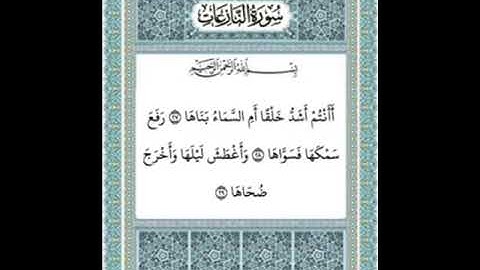 سُورَةُ النَّازِعَاتِ
بِسْمِ اللَّهِ الرَّحْمَنِ الرَّحِيمِ
أَأَنْتُمْ أَشَدُّ خَلْقًا أَمِ السَّمَاءُ بَنَاهَا ﴿٢٧﴾ رَفَعَ
سَمْكَهَا فَسَوَّاهَا ﴿٢٨﴾ وَأَغْطَشَ لَيْلَهَا وَأَخْرَجَ
ضُحَاهَا ﴿٢٩﴾